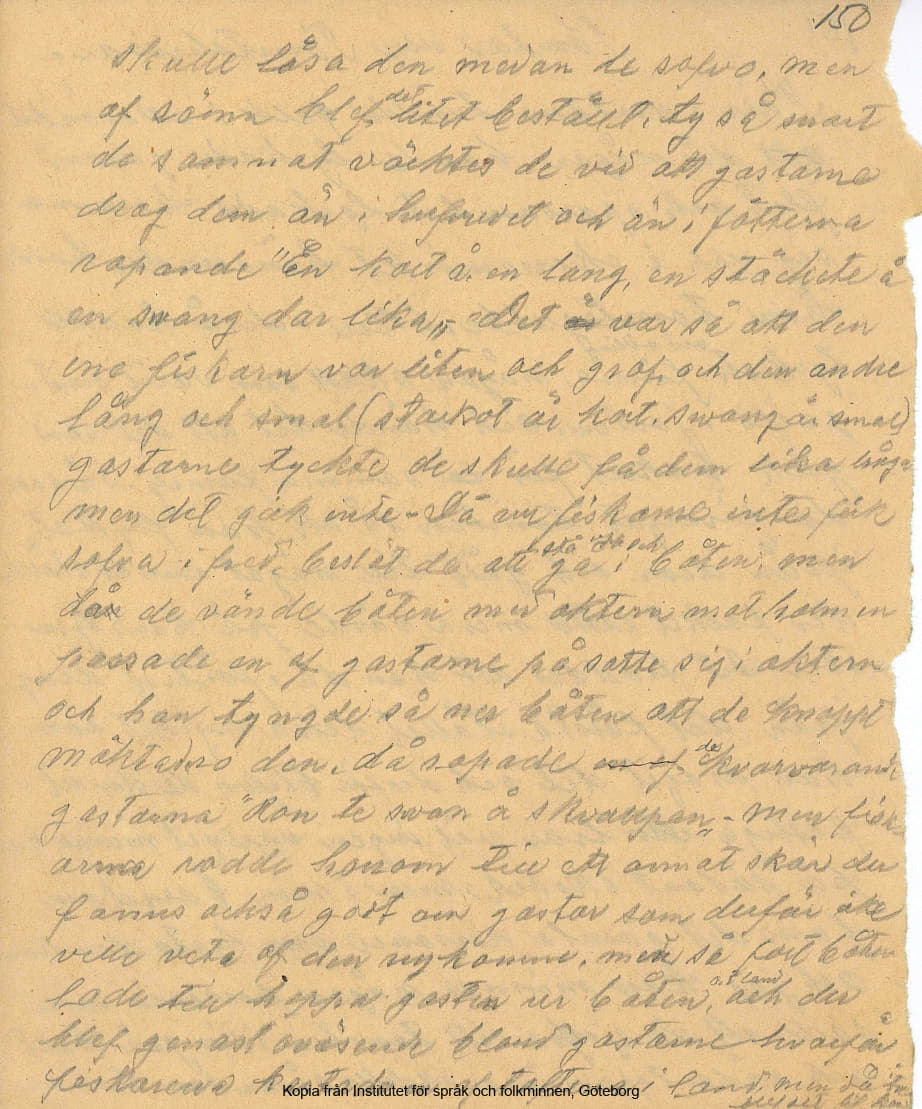 150
skulle låsa den medan de sofvo, men
af sömn blef det litet beståel, ty så snart
de somnat väcktes de vid att gastarne
drog dem än i hufvudet och än i fötterna
ropande "En kort å en lang, en stäckete å
en swång dar lika" - Det är var så att den
ene fiskarn var liten och grof, och den andre
lång och smal (stackot är kort, swang är smal)
gastarne tyckte de skulle få dem lika långa
men det gick inte - Då nu fiskarne inte fick
sofva i fred, beslöt de att stå upp och gå i båten, men
då de vände båten med aktern mot holmen
passade en af gastarne på satte sig i aktern
och han tyngde så ner båten att de knappt
mäktade ro den, då ropade de kvarvarande
gastarna "Ron te swan å skvalpan" - men fisk-
arna rodde honom till ett annat skär der
fanns också godt om gastar som derför icke
ville veta af den nykomne, men så fort båten
lade till hoppa gasten ur båten, och der
blef genast oväsende bland gastarne hvarför
fiskarena i land, men då
Kopia från Institutet för språk och folkminnen, Göteborg